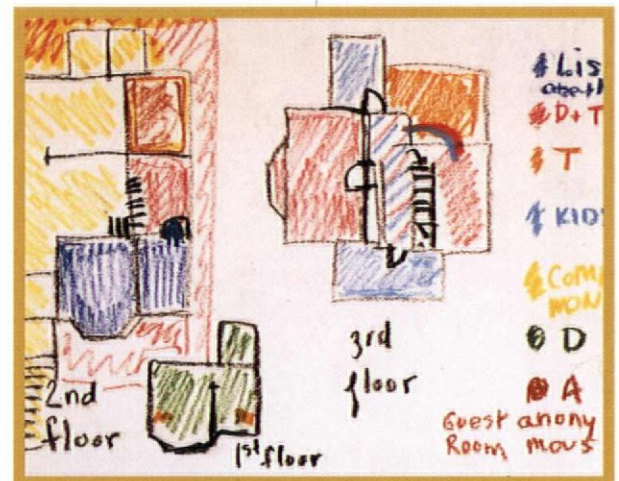 2nd
floor
1st floor
3rd
floor
Lis
abeth
D+T
T
KID'
COM
MON
D
A
Guest anony
Room mous